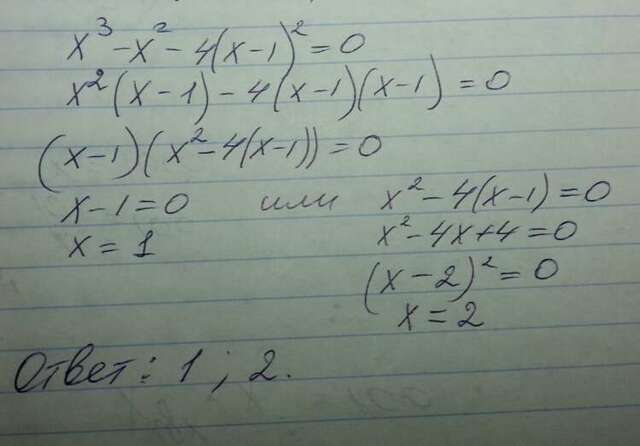 x³ - x² - 4(x-1)² = 0
x²(x-1) - 4(x-1)(x-1) = 0
(x-1)(x² - 4(x-1)) = 0
x-1=0 или x² - 4(x-1) = 0
x = 1 x² - 4x + 4 = 0
(x-2)² = 0
x = 2
Ответ: 1 ; 2.